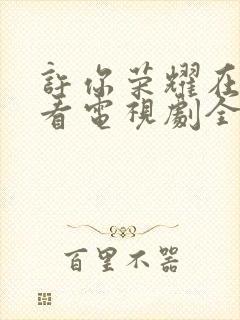 許你荣耀在
看電視劇全
百里不器